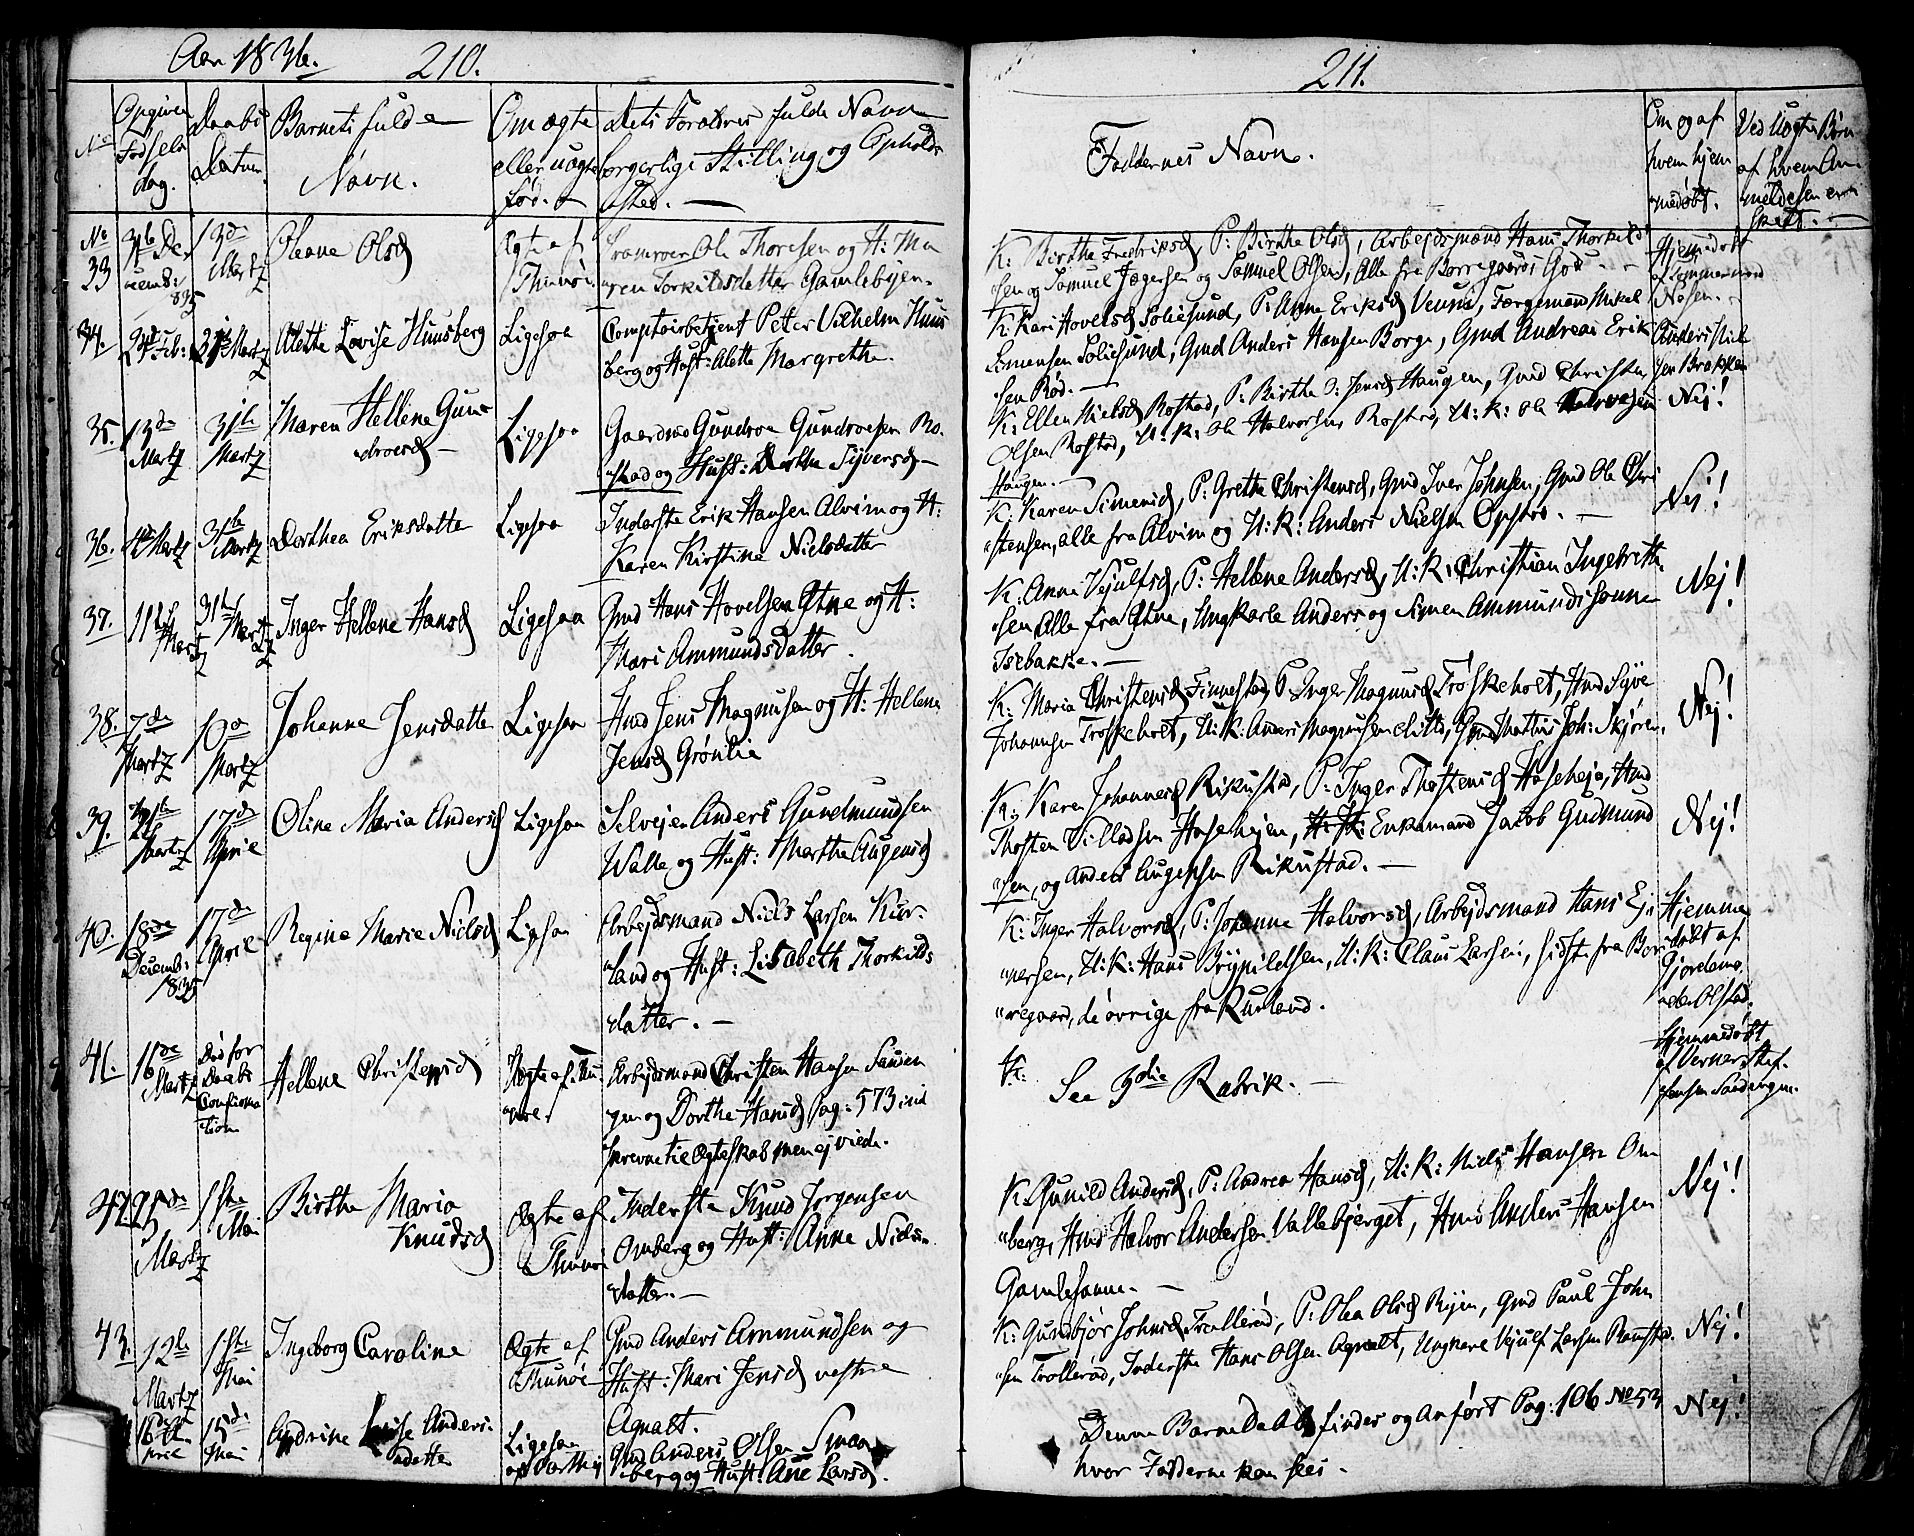 Aar 1836.
210.
No
Opgiven Fødsels dag.
Daabs Datum
Barnets fulde Navn.
Om ægte eller uægte fød.
Dets Forældres fulde Navn borgerlige Stilling og Opholds sted.
No 33
31te December 1835
13de Martz
Oleane Olsd
Ægte af Thunøe
Ole Thoresen og H: Maren Torkildsdatter Gamlebyen.
34.
24de Feb:
31te Martz
Alette Lovise Huusberg
Ligesaa
Comptoirbetjent Petter Vilhelm Huus
berg og Hust: Alette Margrethe.
35.
13de Martz
31te Martz
Maren Hellene Gun
droesd
Ligesaa
Gaardmd Gundroe Gundroesen Ro
stad og Hust: Dorthe Syversd
36.
4de Martz
31te Martz
Dorthea Eriksdatte
Ligesaa
Inderste Erik Hansen Alvim og H:
Karen Kirstine Nielsdatter
37.
11te Martz
31te Martz
Inger Hellene Hansd
Ligesaa
Gmd Hans Hovelsen Ythne og H:
Mari Ammundsdatter.
38.
7de Martz
10de Martz
Johanne Jensdatte
Ligesaa
Hmd Jens Magnusen og H: Hellene
Jensd Grønlie
39.
Martz
17de April
Oline Maria Andersd
Ligesaa
Selvejer Anders Gundmundsen
Walle og Hust: Marthe Augensd
40.
18de Decemb: 1835
17de April
Regine Marie Nielsd
Ligesaa
Arbejdsmand Niels Larsen Kur
land og Hust: Lisabeth Thorkilds
datter.
41.
16de Martz
Død for Daabs Confirmation
Hellene Christensd
Uægte af Thunøe
Arbejdsmand Christen Hansen Sanden
gen og Dorthe Hansd Pag: 573 ind
skrevne til Ægteskab men ej viede.
42.
25de Martz
1ste Mai
Birthe Maria
Knudsd
Ægte af Thunøe
Inderste Knud Jørgensen
Omberg og Hust: Anne Niels
datter.
43.
12te Martz
1ste Mai
Ingeborg Caroline
Ægte af Thunøe
Gmd Anders Ammundsen og
Hust: Mari Jensd vestre
Agnalt.
16de April
15de Mai
Andrine Lovise Anders
datte
Ligesaa
Gmd Anders Olsen Smaa
berg og Hust: Ane Larsd.
211.
Faddernes Navne.
Om og af hvem hjemmedøbt.
Ved Uægte Børn af hvem Anmeldelsen er skeet.
K: Birthe Fredriksd, P: Birthe Olsd, Arbejdsmand Hans Thorkild
sen og Samuel Jægersen og Samuel Olsen, Alle fra Borregaards Gods.
Hjemmedøbt af Tømmermand Nosen.
K: Kari Hovelsd Solisund, P: Anne Eriksd Veum, Færgemand Mikel
Simensen Solisund, Gmd Anders Hansen Borge, Gmd Andreas Erik
sen Rød.
Anders Nielsen Brekken
K: Ellen Nielsd Rostad, P: Birthe Jensd Haugen, Gmd Christen
Olsen Rostad, U: K: Ole Halvorsen Rostad, U: K: Ole Halvorsen
Haugen.
Nej!
K: Karen Simensd, P: Grethe Christensd, Gmd Iver Johnsen, Gmd Ole Chri
stensen, alle fra Alvim og U: K: Anders Nielsen Opstad.
Nej!
K: Anne Vejulfsd, P: Hellene Andersd, U: K: Christian Ingebreth
sen, Alle fra Ythne, Ungkarle Anders og Simen Ammundssønne
Isebakke.
Nej!
K: Maria Christensd Finnestad, P: Inger Magnusd Trøskeholt, Hmd Syve
Johannsen Trøskeholt, U: K: Anders Magnusen ditto, Gmd Mathis Joh: Skjøren.
Nej!
K: Karen Johannesd Rikustad, P: Inger Thostensd Hasehejen, Hmd
Thosten Villadsen Hasehejen, Enkemand Jacob Gudmund
sen, og Anders Augensen Rikustad.
Nej!
K: Inger Halvorsd, P: Johanne Halvorsd, Arbejdsmand Hans Ej
nersen, U: K: Hans Brynildsen, U: K: Claus Larsen, sidste fra Bor
regaard, de øvrige fra Kurland.
Hjemmedøbt af Gjordemoderen Olstad.
K:
See 3die Rubrik.
Hjemmedøbt af Verner Stefensen Sandengen.
K: Gunild Andersd, P: Andrea Hansd, U: K: Niels Hansen Om
berg, Hmd Halvor Andersen Vallebjerget, Hmd Anders Hansen
Gamlehaune.
Nej!
K: Gunbjør Johnsd Trollerød, P: Olea Olsd Ryen, Gmd Paul John
sen Trollerød, Inderste Hans Olsen Agnalt, Ungkarl Vejulf Larsen Ramstad.
Nej!
Denne Barne Daab findes og anført Pag: 106 No 53
hvor Fadderne kan sees.
Nej!